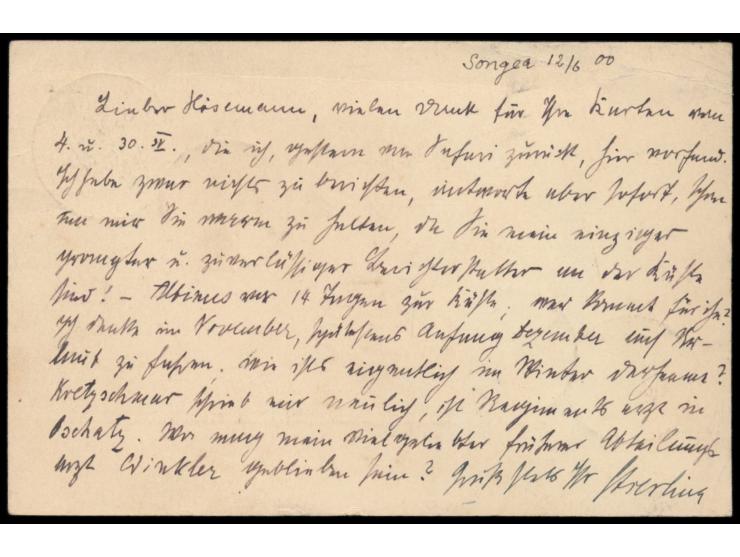 Songea 12/6 00
Lieber Hösemann, vielen Dank für Ihre Karten vom
4. u. 30. IV., die ich, gestern von Safari zurück, hier vorfand.
Ich habe zwar nichts zu berichten, antworte aber sofort, schon
um mir Sie warm zu halten, da Sie mein einziger
prompter u. zuverlässiger Berichterstatter an der Küste
sind! – Albinus vor 14 Tagen zur Küste; wer kommt für ihn?
Ich denke im November, spätestens Anfang Dezember auf Ur-
laub zu fahren. Wie ists eigentlich im Winter daheim?
Kretzschmar schrieb mir neulich, ist Regimentsarzt in
Oschatz. Wo mag mein vielgeliebter früherer Abteilungs
arzt Winkler geblieben sein? Grüße stets Ihr Stierling